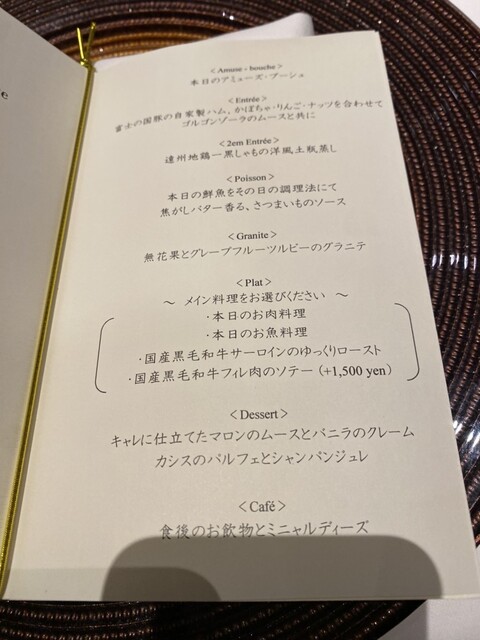 e
< Amuse - bouche >
本日のアミューズ・ブーシュ
< Entrée >
富士の国豚の自家製ハム、かぼちゃ・りんご・ナッツを合わせて
ゴルゴンゾーラのムースと共に
< 2em Entrée >
遠州地鶏一黒しゃもの洋風土瓶蒸し
< Poisson >
本日の鮮魚をその日の調理法にて
焦がしバター香る、さつまいものソース
< Granite >
無花果とグレープフルーツルビーのグラニテ
< Plat >
～ メイン料理をお選びください ～
・本日のお肉料理
・本日のお魚料理
・国産黒毛和牛サーロインのゆっくりロースト
・国産黒毛和牛フィレ肉のソテー (+1,500 yen)
< Dessert >
キャレに仕立てたマロンのムースとバニラのクレーム
カシスのパルフェとシャンパンジュレ
< Café >
食後のお飲物とミニャルディーズ